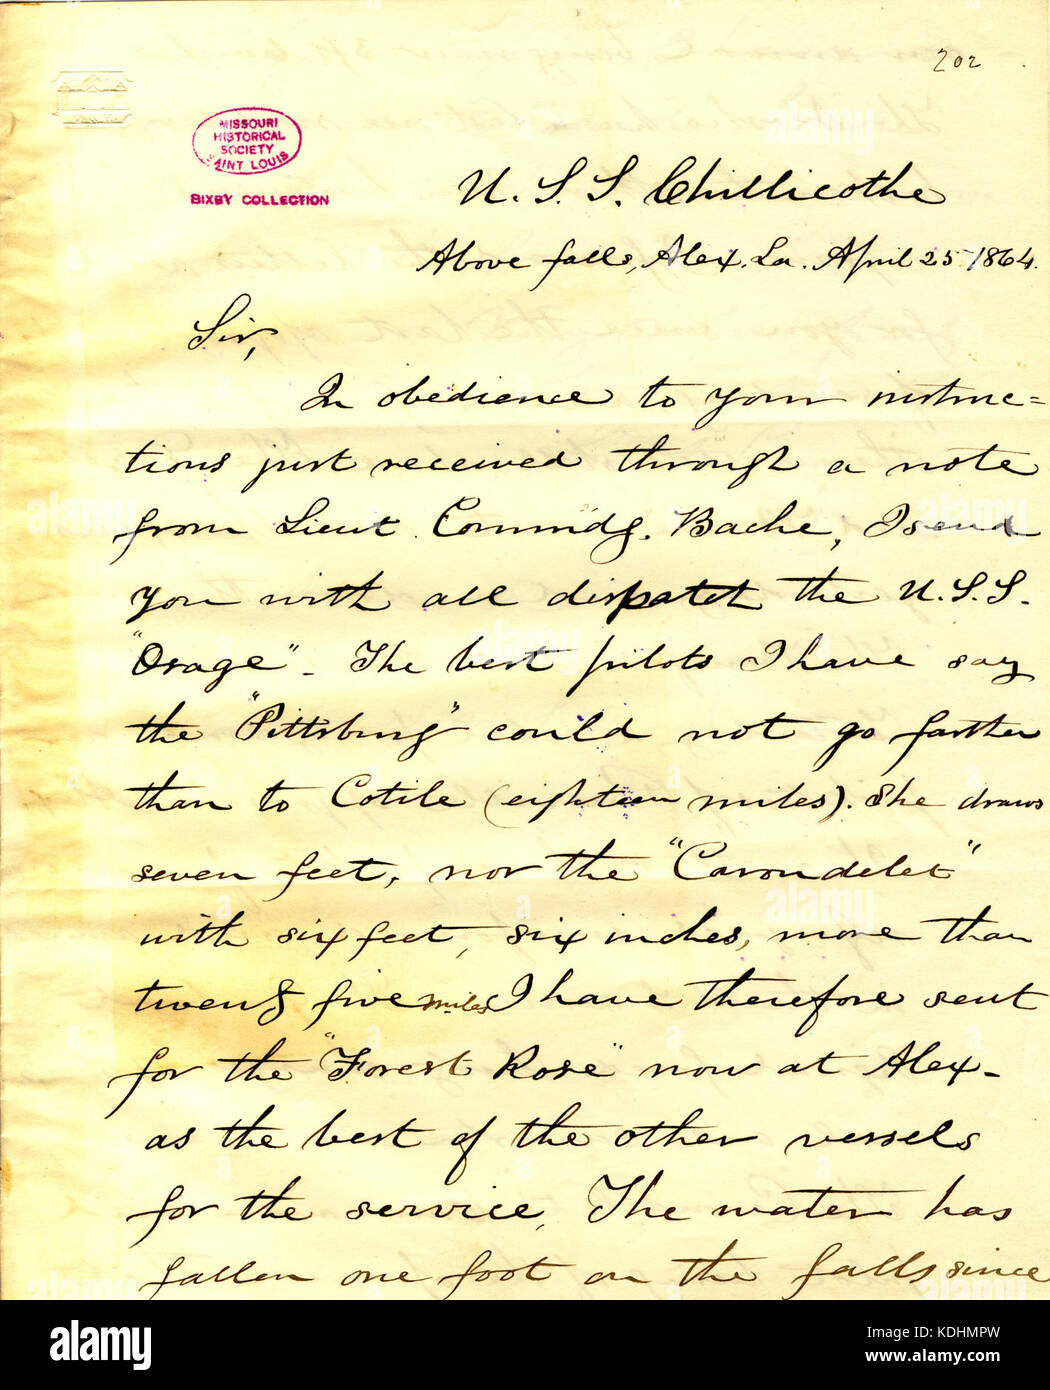 202
MISSOURI
HISTORICAL
SOCIETY
SAINT LOUIS
BIXBY COLLECTION
U. S. S. Chillicothe
Above falls, Alex. La. April 25 1864.
Sir,
In obedience to your instruc=
tions just received through a note
from Lieut. Commdg. Bache, I send
you with all dispatch the U. S. S.
"Osage" - The best pilots I have say
the "Pittsburg" could not go farther
than to Cotile (eighteen miles). She draws
seven feet, nor the "Carondelet"
with six feet, six inches, more than
twenty five miles I have therefore sent
for the "Forest Rose" now at Alex-
as the best of the other vessels
for the service. The water has
fallen one foot on the falls since
alamy
Image ID: KDHMPW
www.alamy.com